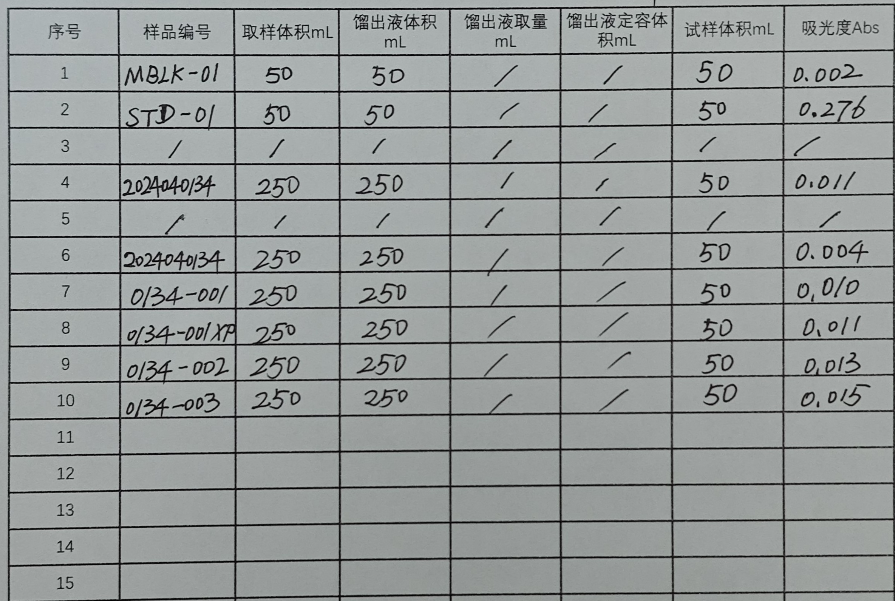 序号 样品编号 取样体积mL 馏出液体积mL 馏出液取量mL 馏出液定容体积mL 试样体积mL 吸光度Abs
1 MBLK-01 50 50 / / 50 0.002
2 STD-01 50 50 / / 50 0.276
3 / / / / / / /
4 2024040134 250 250 / / 50 0.011
5 / / / / / / /
6 2024040134 250 250 / / 50 0.004
7 0134-001 250 250 / / 50 0.010
8 0134-001XP 250 250 / / 50 0.011
9 0134-002 250 250 / / 50 0.013
10 0134-003 250 250 / / 50 0.015
11
12
13
14
15